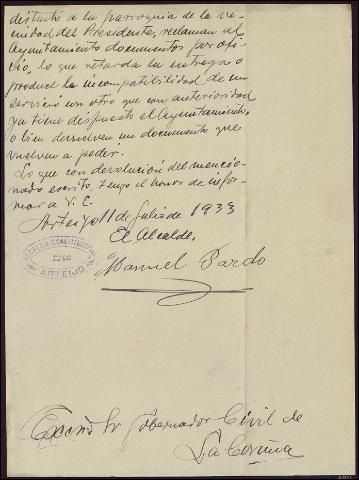 distinto a la parroquia de la ve-
cindad del Presidente, reclaman al
Ayuntamiento documentos por ofi-
cio, lo que retarda la entrega o
produce la incompatibilidad de un
servicio con otro que con anterioridad
ya tiene dispuesto el Ayuntamiento,
o bien devuelven un documento que
vuelven a pedir.
Lo que con devolución del mencio-
nado escrito, tengo el honor de infor-
mar a V. E.
Arteijo 11 de Julio de 1933
El Alcalde,
ALCALDIA CONSTITUCIONAL
DE
ARTEIJO
Manuel Pardo
Excmo Sr Gobernador Civil de
La Coruña